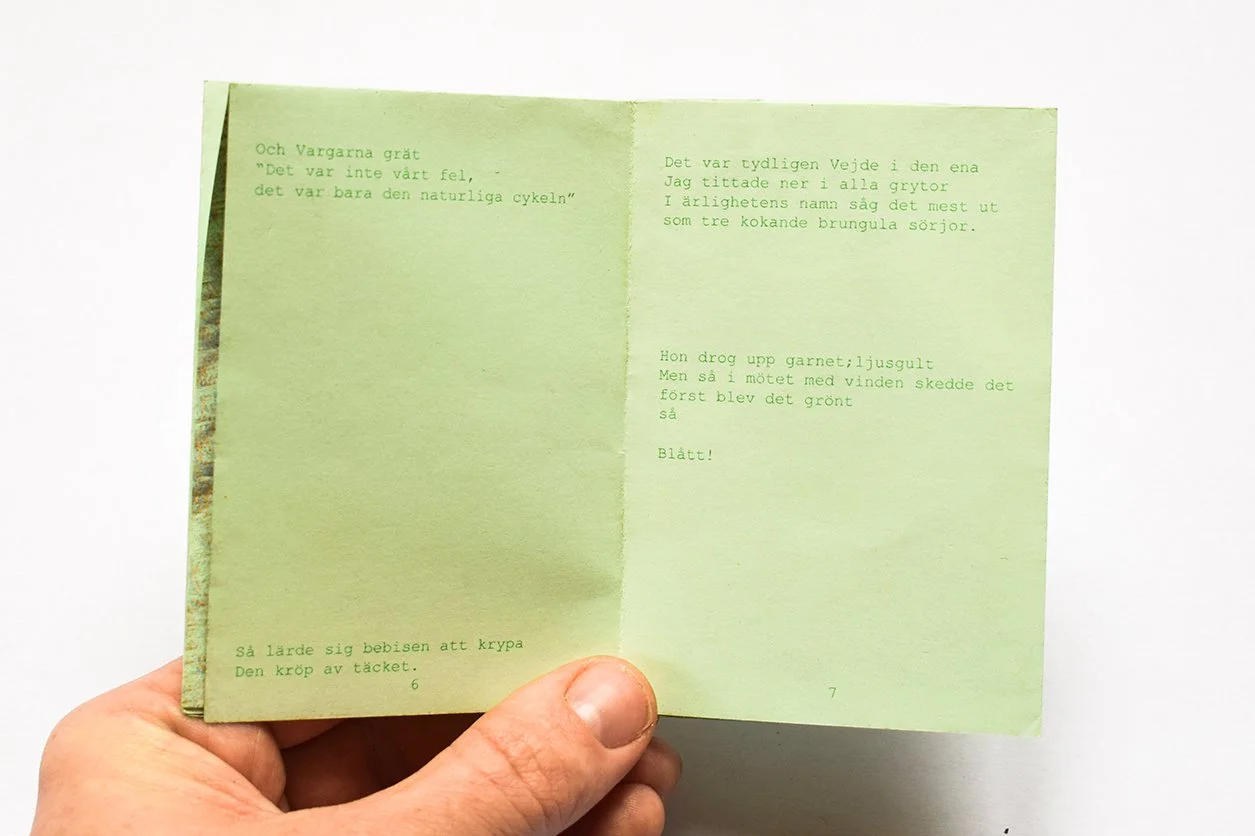 Och Vargarna grät
“Det var inte vårt fel,
det var bara den naturliga cykeln”
Så lärde sig bebisen att krypa
Den kröp av täcket.
6
Det var tydligen Vejde i den ena
Jag tittade ner i alla grytor
I ärlighetens namn såg det mest ut
som tre kokande brungula sörjor.
Hon drog upp garnet;ljusgult
Men så i mötet med vinden skedde det
först blev det grönt
så
Blått!
7